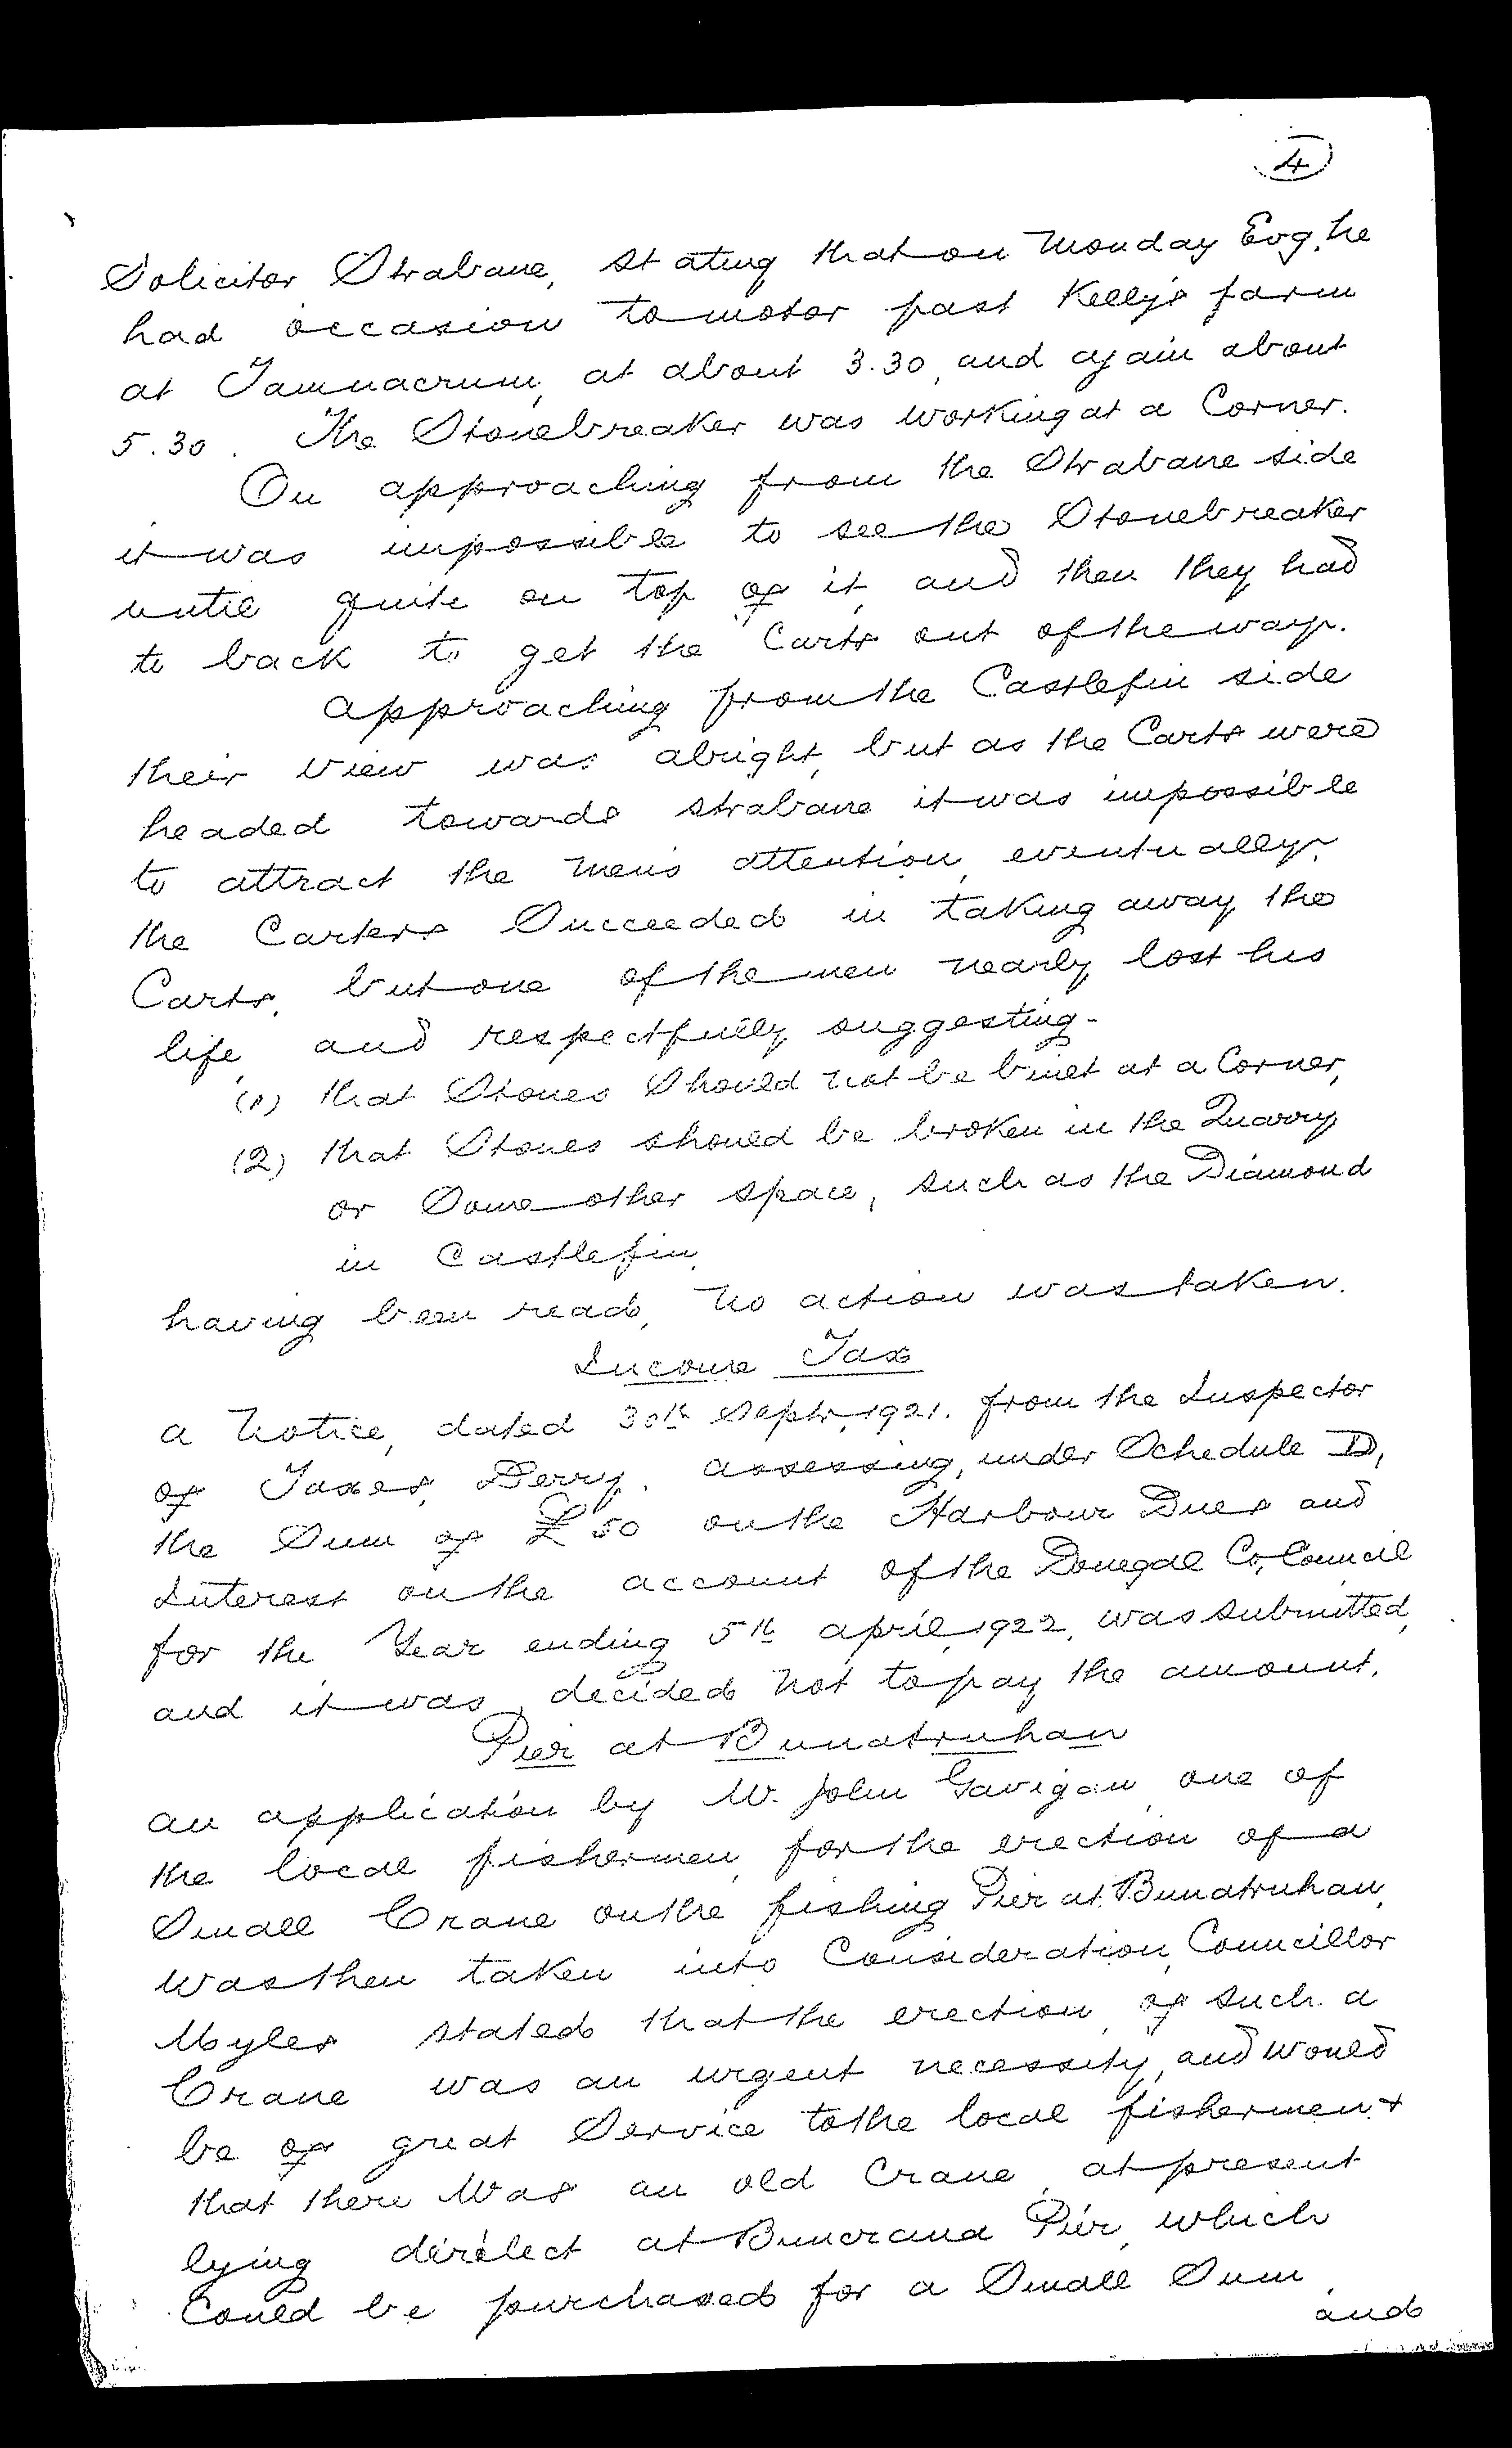 4
Solicitor Strabane, stating that on Monday Evg, he
had occasion to motor past Kelly's farm
at Tamnacrum, at about 3.30, and again about
5.30. The Stonebreaker was working at a Corner.
On approaching from the Strabane side
it was impossible to see the Stonebreaker
until quite on top of it, and then they had
to back to get the Carts out of the way.
Approaching from the Castlefin side
their view was alright, but as the Carts were
headed towards Strabane it was impossible
to attract the men's attention, eventually
the Carters Succeeded in taking away the
Carts, but one of the men nearly lost his
life, and respectfully suggesting-
(1) that Stones Should not be built at a Corner,
(2) that Stones should be broken in the Quarry
or Some other space, such as the Diamond
in Castlefin,
having been read, no action was taken.
Income Tax
A Notice, dated 30th Septr, 1921. from the Inspector
of Taxes, Derry, assessing, under Schedule D,
the Sum of £50 on the Harbour Dues and
Interest on the account of the Donegal Co, Council
for the Year ending 5th April, 1922, was submitted,
and it was decided not to pay the amount.
Pier at Bunatruhan
An application by Mr. John Gavigan one of
the local fishermen, for the erection of a
Small Crane on the fishing Pier at Bunatruhan,
was then taken into Consideration, Councillor
Myles stated that the erection of such a
Crane was an urgent necessity, and would
be of great Service to the local fishermen +
that there was an old Crane at present
lying direlect at Buncrana Pier, which
Could be purchased for a Small Sum,
and